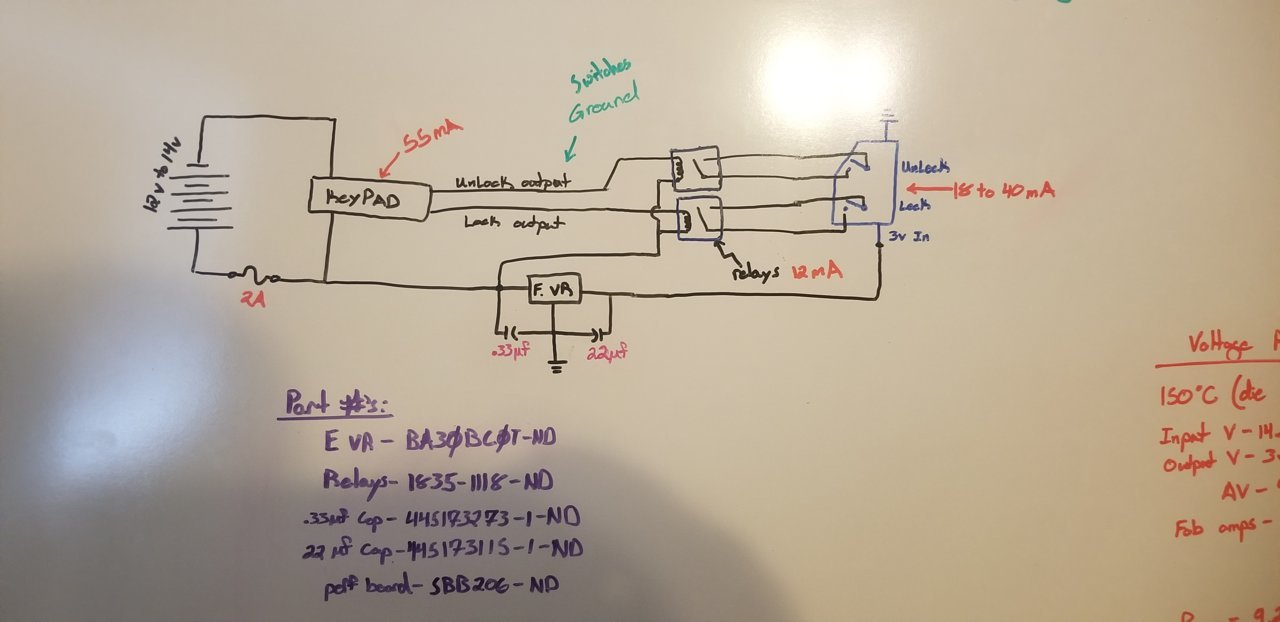 Switches
Ground
12v to 14v
55mA
KeyPAD
UnLock output
Lock output
UnLock
18 to 40 mA
Lock
3v In
relays 12mA
2A
F. VR
.33µf
22µf
Part #'s:
F VR - BA30BC0T-ND
Relays - 1835-1118-ND
.33µf Cap - 445173273-1-ND
22µf Cap - 445173115-1-ND
perf board - SBB206-ND
Voltage
150°C (die
Input V - 14.
Output V - 3
ΔV -
Fob amps -
= 9.2